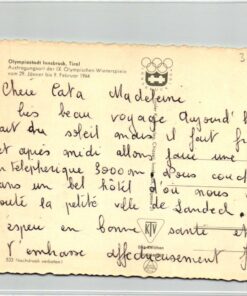 Olympiastadt Innsbruck, Tirol
Austragungsort der IX. Olympischen Winterspiele
vom 29. Jänner bis 9. Februar 1964
Chère Tata Madeleine
très beau voyage Aujourd'h
du soleil mais il faut fr
et après midi allons faire une
Telepherique 3000m
ans un bel hôtel d'où nous
toute la petite ville de Landeck
espère en bonne santé et
t'embrasse affectueusement